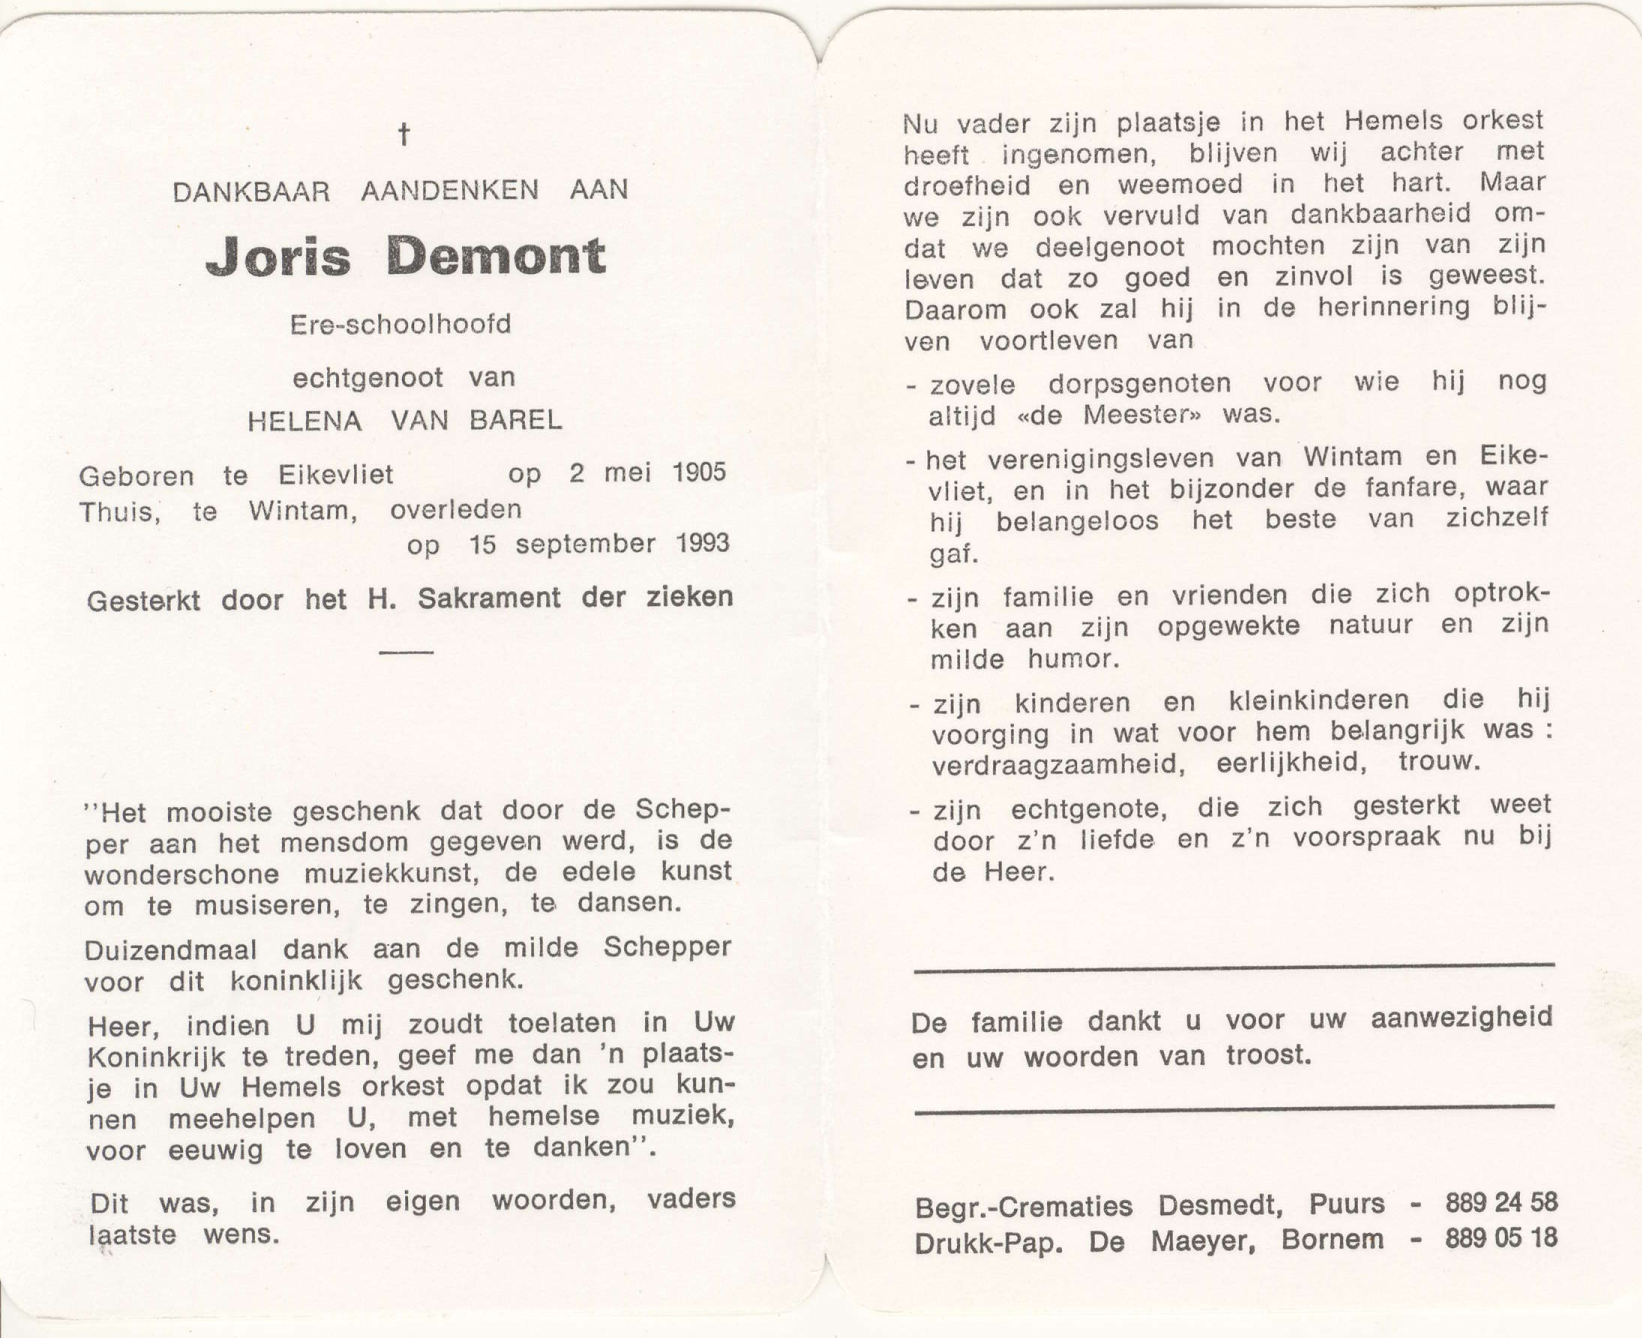 †
DANKBAAR AANDENKEN AAN
Joris Demont
Ere-schoolhoofd
echtgenoot van
HELENA VAN BAREL
Geboren te Eikevliet op 2 mei 1905
Thuis, te Wintam, overleden
op 15 september 1993
Gesterkt door het H. Sakrament der zieken
"Het mooiste geschenk dat door de Schep-
per aan het mensdom gegeven werd, is de
wonderschone muziekkunst, de edele kunst
om te musiseren, te zingen, te dansen.
Duizendmaal dank aan de milde Schepper
voor dit koninklijk geschenk.
Heer, indien U mij zoudt toelaten in Uw
Koninkrijk te treden, geef me dan 'n plaats-
je in Uw Hemels orkest opdat ik zou kun-
nen meehelpen U, met hemelse muziek,
voor eeuwig te loven en te danken".
Dit was, in zijn eigen woorden, vaders
laatste wens.
Nu vader zijn plaatsje in het Hemels orkest
heeft ingenomen, blijven wij achter met
droefheid en weemoed in het hart. Maar
we zijn ook vervuld van dankbaarheid om-
dat we deelgenoot mochten zijn van zijn
leven dat zo goed en zinvol is geweest.
Daarom ook zal hij in de herinnering blij-
ven voortleven van
- zovele dorpsgenoten voor wie hij nog
altijd «de Meester» was.
- het verenigingsleven van Wintam en Eike-
vliet, en in het bijzonder de fanfare, waar
hij belangeloos het beste van zichzelf
gaf.
- zijn familie en vrienden die zich optrok-
ken aan zijn opgewekte natuur en zijn
milde humor.
- zijn kinderen en kleinkinderen die hij
voorging in wat voor hem belangrijk was :
verdraagzaamheid, eerlijkheid, trouw.
- zijn echtgenote, die zich gesterkt weet
door z'n liefde en z'n voorspraak nu bij
de Heer.
De familie dankt u voor uw aanwezigheid
en uw woorden van troost.
Begr.-Crematies Desmedt, Puurs - 889 24 58
Drukk-Pap. De Maeyer, Bornem - 889 05 18